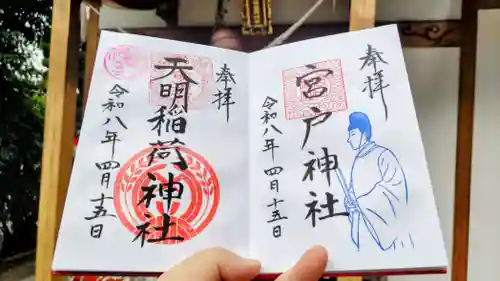 奉拝
宮戸神社
令和八年四月十五日
奉拝
天明稲荷神社
令和八年四月十五日